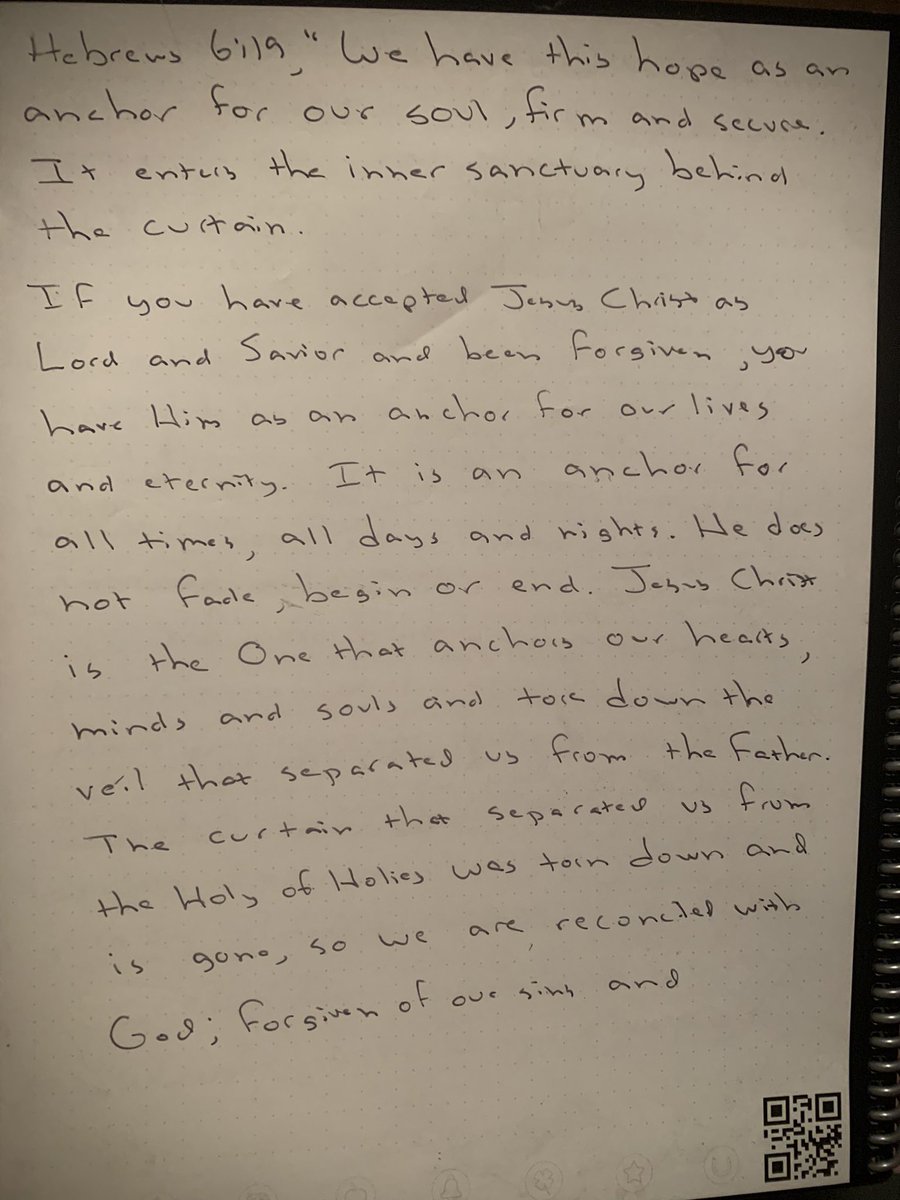 Hebrews 6:19, "We have this hope as an
anchor for our soul, firm and secure.
It enters the inner sanctuary behind
the curtain.
If you have accepted Jesus Christ as
Lord and Savior and been forgiven, you
have Him as an anchor for our lives
and eternity. It is an anchor for
all times, all days and nights. He does
not fade, begin or end. Jesus Christ
is the One that anchors our hearts,
minds and souls and tore down the
veil that separated us from the Father.
The curtain that separated us from
the Holy of Holies was torn down and
is gone, so we are reconciled with
God; forgiven of our sins and